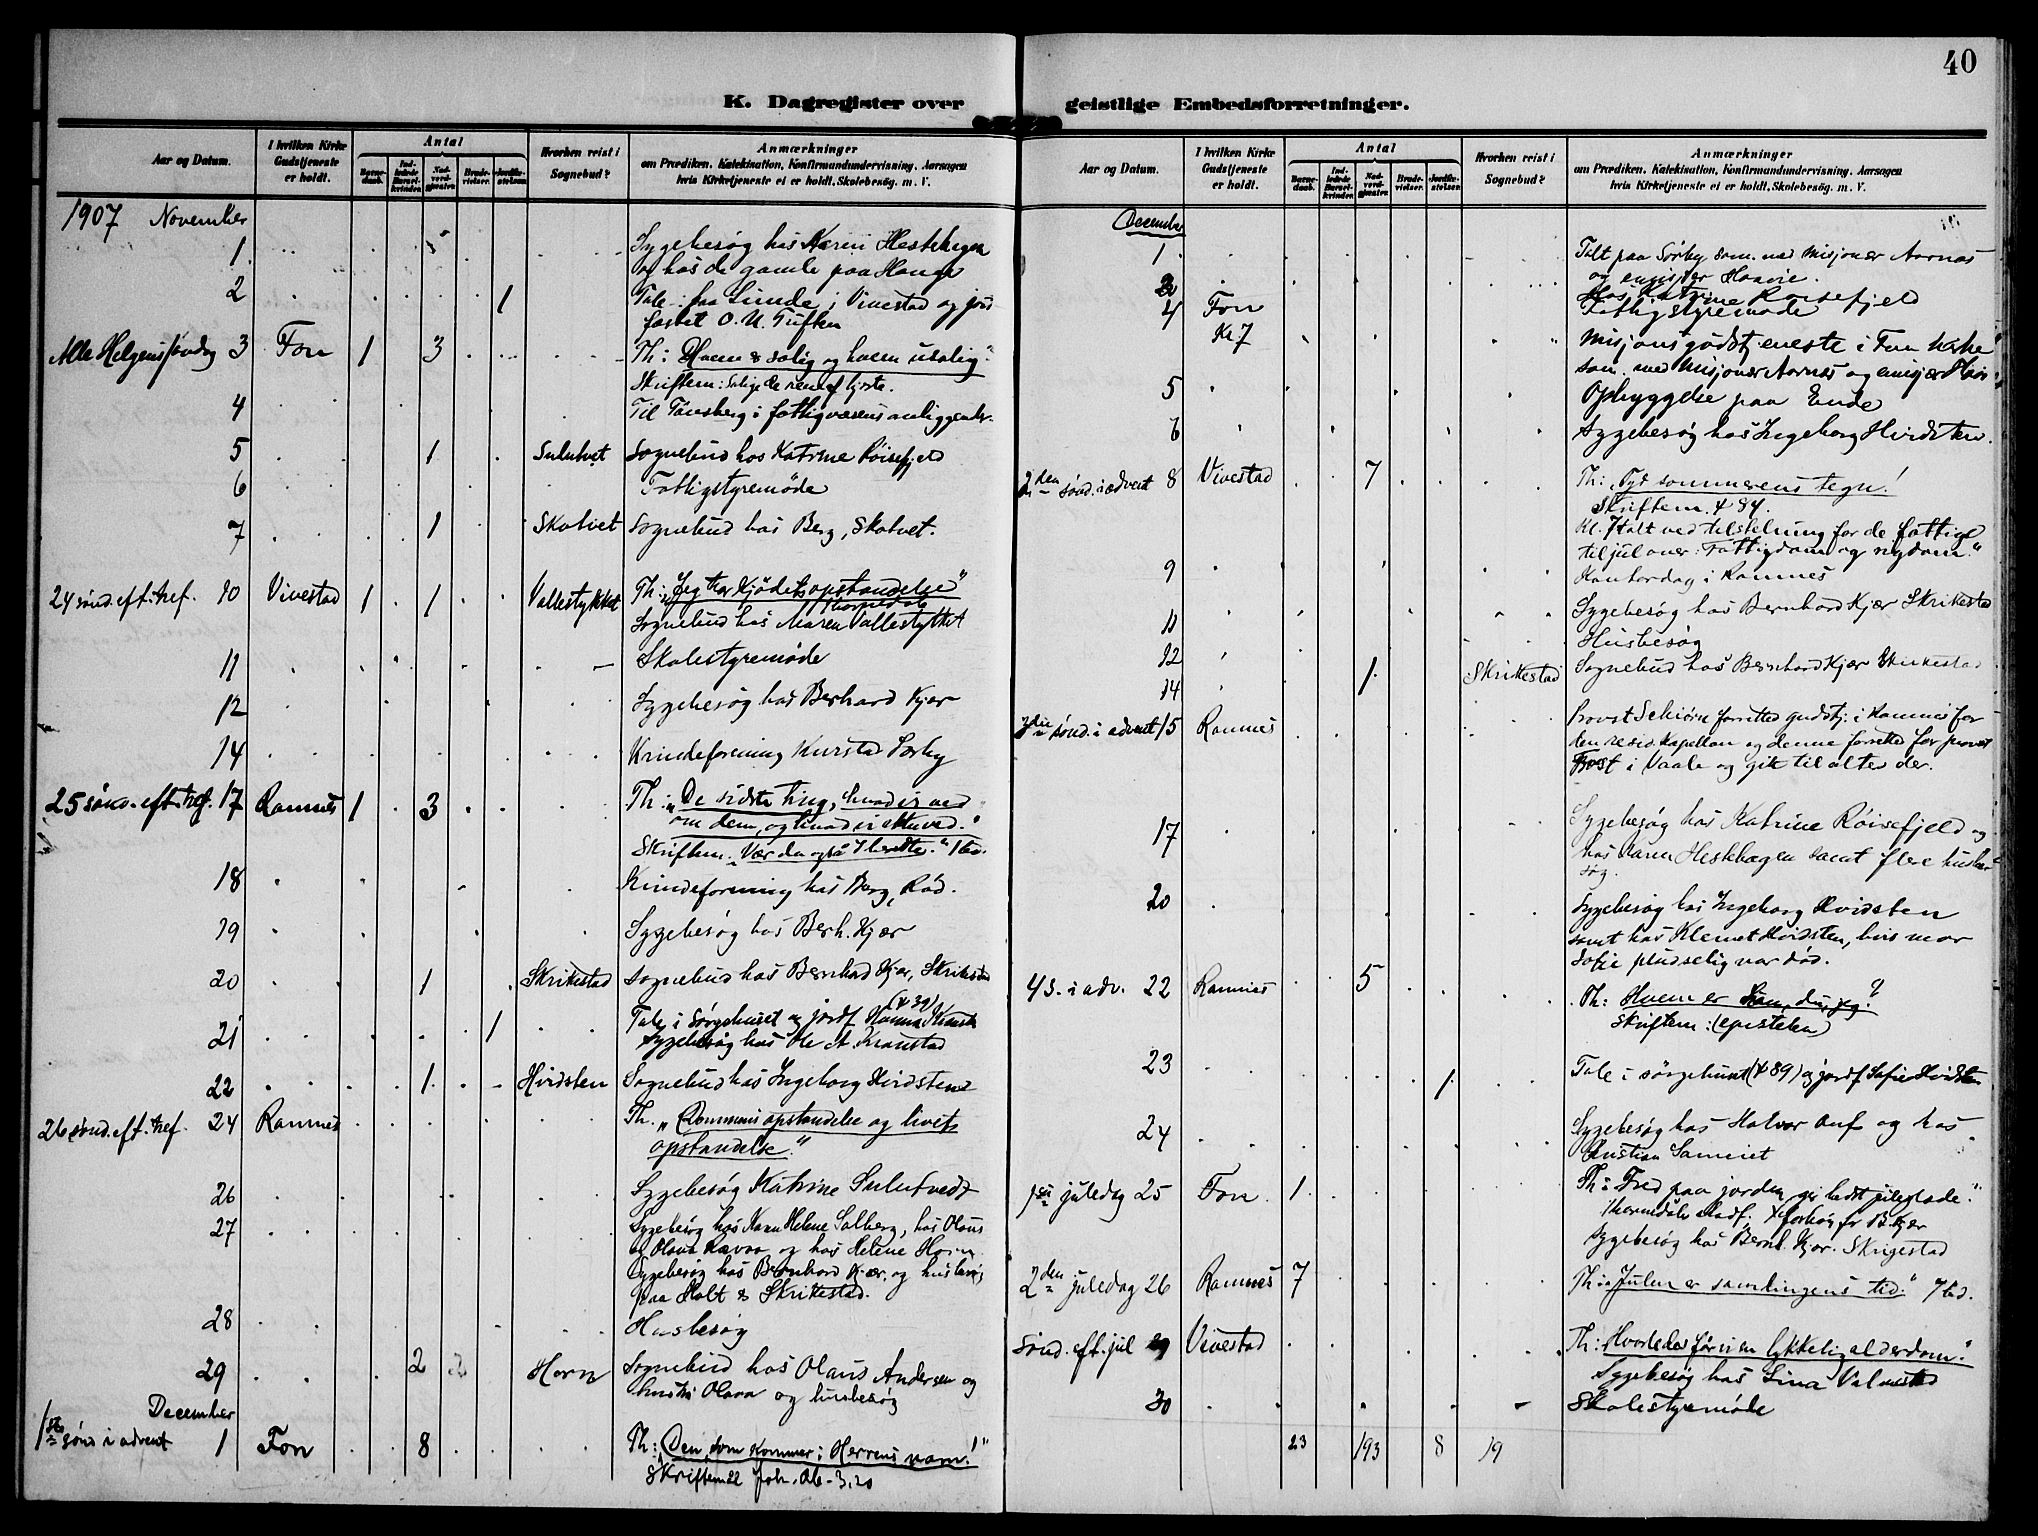 40
K. Dagregister over geistlige Embedsforretninger.
Aar og Datum.
I hvilken Kirke Gudstjeneste er holdt.
Antal
Barne-daab.
Ind-ledede Barsel-kvinder
Nad-verd-gjæster.
Brude-vielser.
Jordfæ-stelser.
Hvorhen reist i Sognebud?
Anmærkninger
om Prædiken, Katekisation, Konfirmandundervisning, Aarsagen
hvis Kirketjeneste ei er holdt, Skolebesøg. m. V.
1907 November
1. Sygebesøg hos Karen Hestehagen
og hos de gamle paa Hauge
2 1 Tale paa Linde i Vivestad og jord
fæstet O. U. Tuften
Alle Helgens søndag 3 Fon 1 3 Th: Hvem er salig og hvem usalig."
Skriftem: Salige de rene af hjerte.
4 Til Tønsberg i fattigvæsens anliggender.
5 1 Sulutvet Sognebud hos Katrine Røisefjeld
6 Fattigstyremöde
7 1 Skatvet Sognebud hos Berg, Skatvet.
24 sönd. eft. tref. 10 Vivestad 1 1 Vallestykket Th: "Jeg tror kjødets opstandelse"
Sognebud hos Maren Vallestykket
11 Skolestyremöde
12 Sygebesøg hos Berhard Kjær
14 Kvindeforening Kurstad Sørby
25 sönd. eft. tref. 17 Ramnes 1 3 Th: "De sidste ting, hvad vi ved
om dem, og hvad vi ikke ved."
Skriftem. "Vær du også
18 Kvindeforening hos Berg, Rød.
19 Sygebesøg hos Berh. Kjær
20 1 Skrikestad Sognebud hos Bernhard Kjær, Skrikestad
21 1 Tale i Sørgehuset og jordf Hanna
Sygebesøg hos Ole A. Kraustad
22 1 Hvidsten Sognebud hos Ingeborg Hvidsten
26 sönd. eft. tref. 24 Ramnes Th. "Dommens opstandelse og livets
opstandelse."
26 Sygebesøg Katrine Sulutvedt
27 Sygebesøg hos Karen Helene Solberg, hos Olaus
og Olava Ravaa og hos Helene Horn
Sygebesøg hos Bernhard Kjær, og husbesøg
paa Holt & Skrikestad.
28 Husbesøg
29 2 Horn Sognebud hos Olaus Andersen og
hustru Olava og husbesøg
December
1ste sönd i advent 1 Fon 8 Th: "Den, som kommer i Herrens navn!"
Skriftem Joh. Ab. 3,20
Aar og Datum.
I hvilken Kirke Gudstjeneste er holdt.
Antal
Barne-daab.
Ind-ledede Barsel-kvinder
Nad-verd-gjæster.
Brude-vielser.
Jordfæ-stelser.
Hvorhen reist i Sognebud?
Anmærkninger
om Prædiken, Katekisation, Konfirmandundervisning, Aarsagen
hvis Kirketjeneste ei er holdt, Skolebesøg. m. V.
December
1. Talt paa Sørby sam. med misjonær Aarnæs
og
Hos Katrine Røisefjeld
Fattigstyremöde
4 Fon
Kl 7 Misjonsgudstjeneste i Fon kirke
sam. med misjonær Aarnæs og
5 Opbyggelse paa Ende
6 Sygebesøg hos Ingeborg Hvidsten.
2den sönd. i advent 8 Vivestad 7 Th: "Tyd sommerens tegn!
Skriftem. 84.
Kl. 7 talt ved tilstelning for de fattige
til jul over: "Fattigdom og rigdom."
9 Kontordag i Ramnes
11 Sygebesøg hos Bernhard Kjær Skrikestad
Husbesøg
12 Sognebud hos Bernhard Kjær Skrikestad
14 1. Skrikestad
3die sönd. i advent 15 Ramnes Provst Schiørn forretted gudstj. i Ramnes for
den resid. kapellan og denne forretted for provst
i Vaale og gik til alters der.
17 Sygebesøg hos Katrine Røisefjeld og
hos Karen Hestehagen samt flere husbe
søg.
20 Sygebesøg hos Ingeborg Hvidsten
samt hos Klemet Hvidsten, hvis mor
Sofie pludselig var död.
4 s. i adv. 22 Ramnes 5 Th: Hvem er du, jeg?
Skriftem: (epistelen)
23 1 Tale i sörgehuset (89) og jordf Sofie Hvidsten
24 Sygebesøg hos Halvor Auf og hos
Kristian Sameiet
1ste juledag 25 Fon 1 Th: Fred paa jorden gir bedst juleglæde."
for B. Kjær
Sygebesøg hos Bernh. Kjær. Skrigestad
2den juledag 26 Ramnes 7 Th: "Julen er samlingens tid."
Sönd. eft. jul 29 Vivestad Th: "Hvorledes får vi en lykkelig alderdom."
Sygebesøg hos Lina Valmestad
30 Skolestyremöde
23 193 8 19